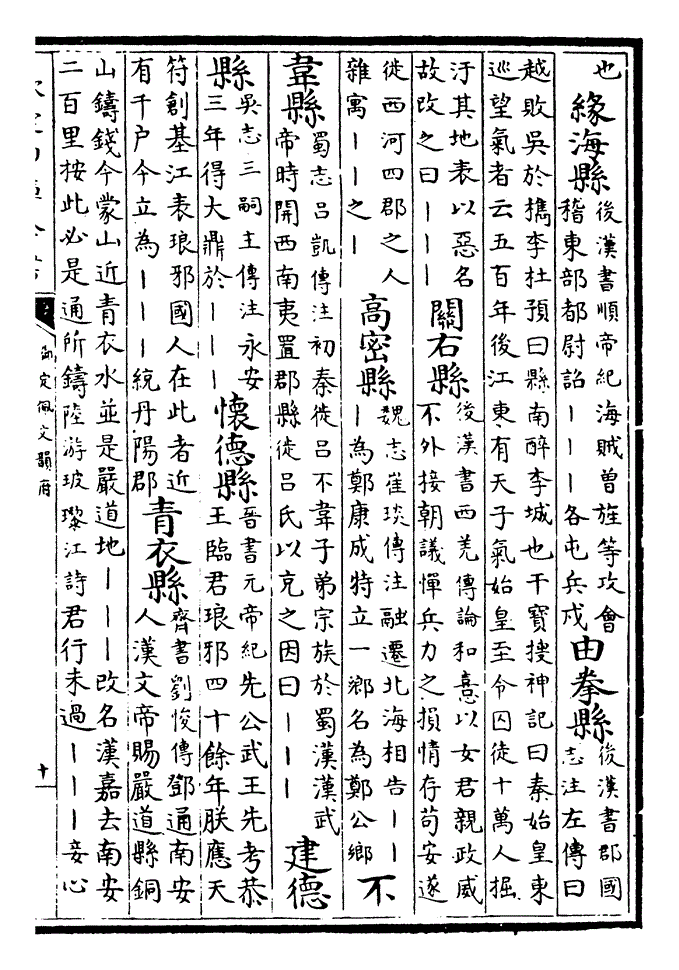 也
緣海縣
後漢書順帝紀海賊曾旌等攻會
稽東部都尉詔｜｜｜各屯兵戍
由拳縣
後漢書郡國
志注左傳曰
越敗吳於檇李杜預曰縣南醉李城也干寶搜神記曰秦始皇東
巡望氣者云五百年後江東有天子氣始皇至令囚徒十萬人掘
汙其地表以惡名
故改之曰｜｜｜
關右縣
後漢書西羌傳論和熹以女君親政威
不外接朝議憚兵力之損情存苟安遂
徙西河四郡之人
雜寓｜｜之｜
高密縣
魏志崔琰傳注融遷北海相告｜｜
｜為鄭康成特立一鄉名為鄭公鄉
不
韋縣
蜀志呂凱傳注初秦徙呂不韋子弟宗族於蜀漢漢武
帝時開西南夷置郡縣徙呂氏以充之因曰｜｜｜
建德
縣
吳志三嗣主傳注永安
三年得大鼎於｜｜｜
懷德縣
晉書元帝紀先公武王先考恭
王臨君琅邪四十餘年朕應天
符創基江表琅邪國人在此者近
有千户今立為｜｜｜統丹陽郡
青衣縣
齊書劉悛傳鄧通南安
人漢文帝賜嚴道縣銅
山鑄錢今蒙山近青衣水並是嚴道地｜｜｜改名漢嘉去南安
二百里按此必是通所鑄陸游玻瓈江詩君行未過｜｜｜妾心
御定佩文韻府
十